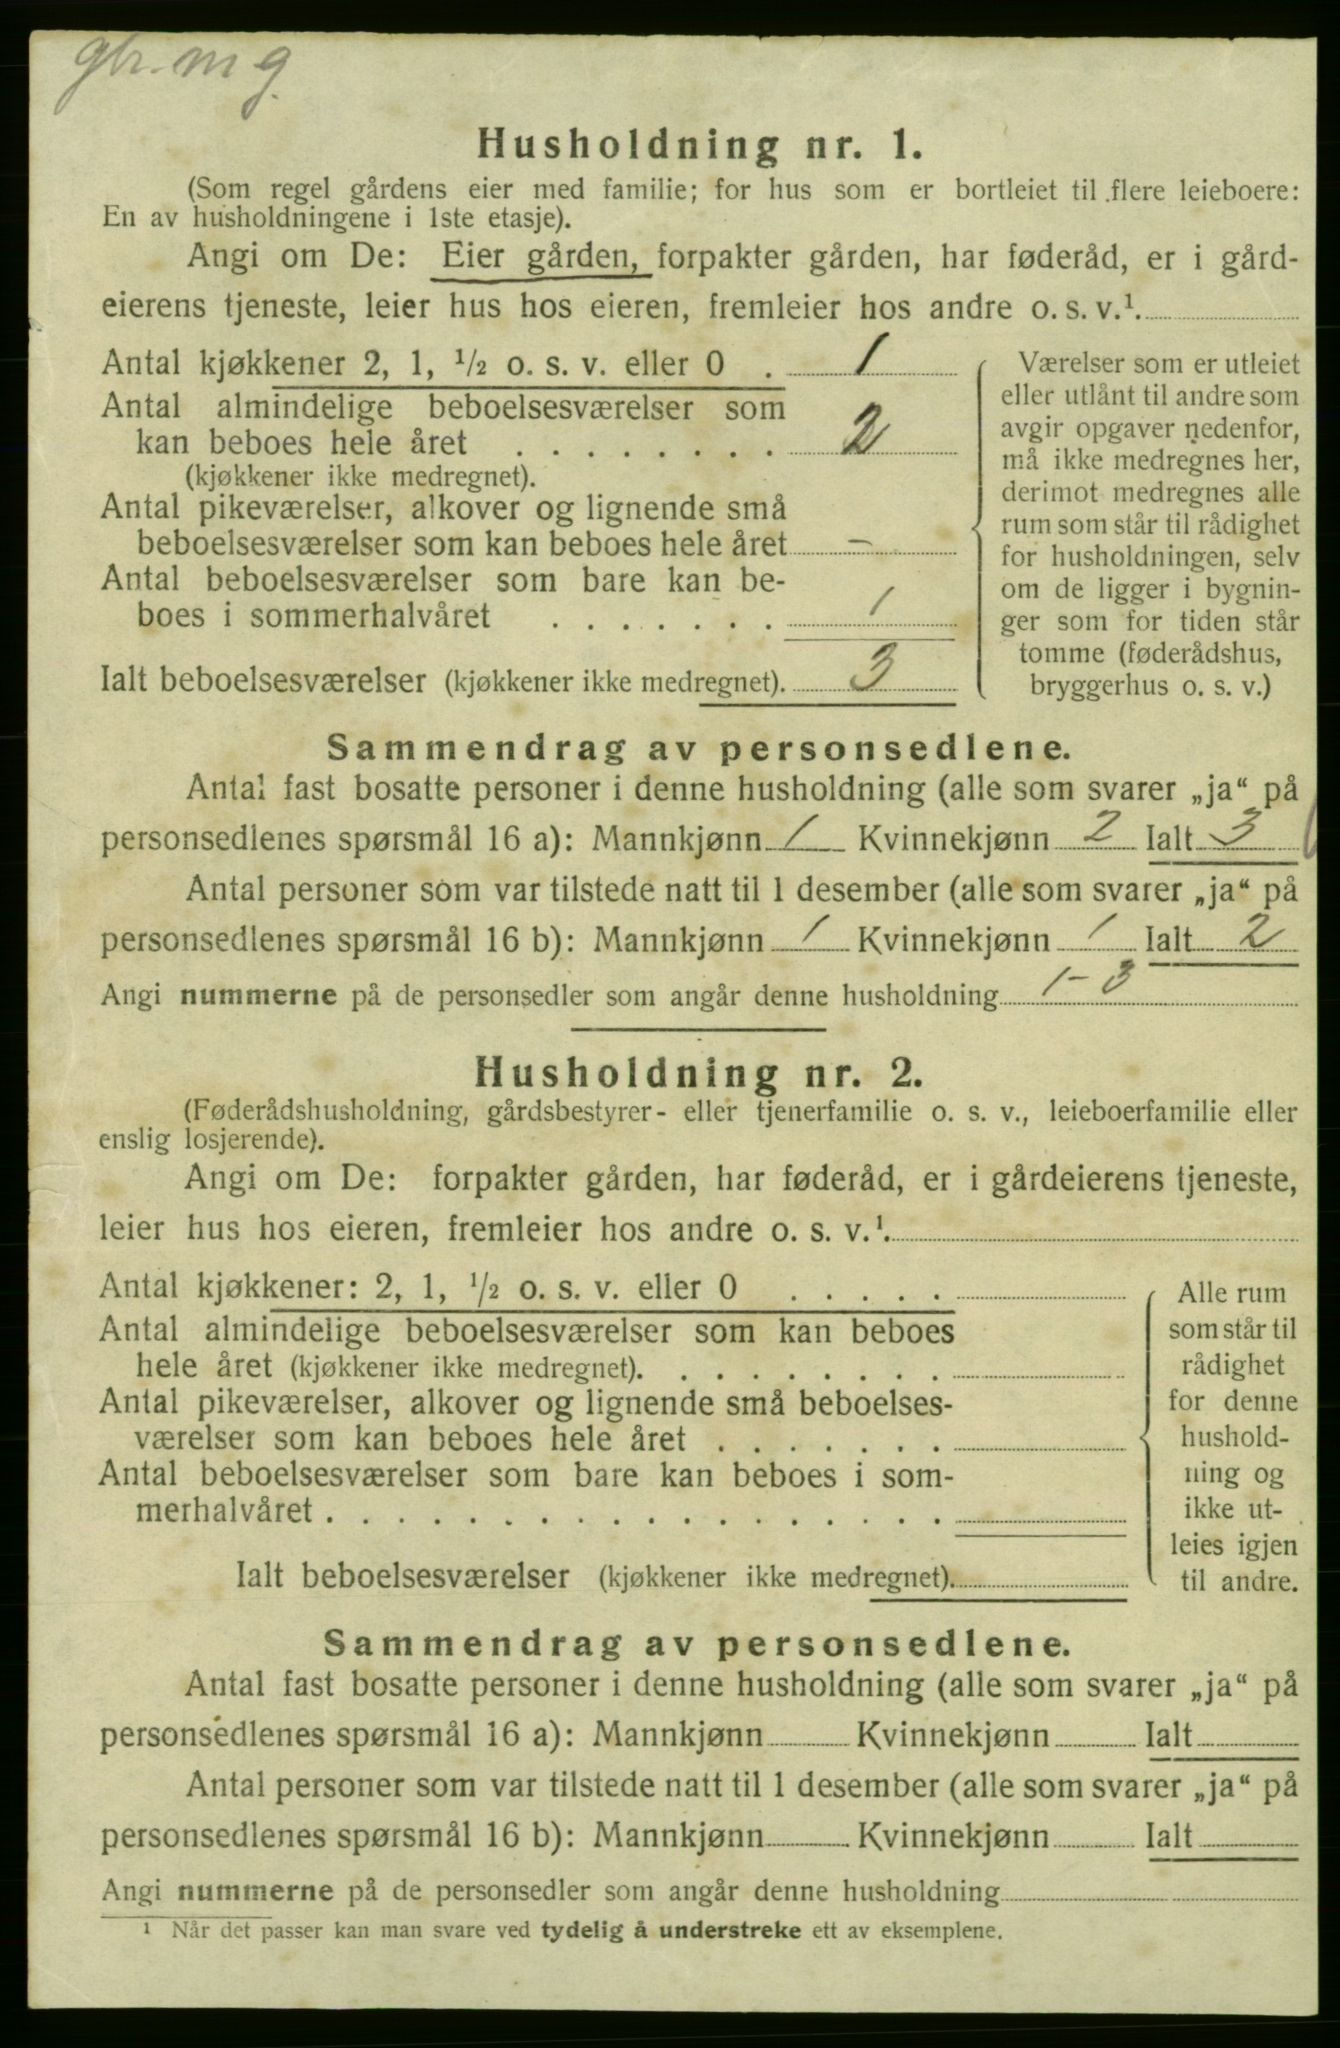 gbr. m g.
Husholdning nr. 1.
(Som regel gårdens eier med familie; for hus som er bortleiet til flere leieboere:
En av husholdningene i 1ste etasje).
Angi om De: Eier gården, forpakter gården, har føderåd, er i gård-
eierens tjeneste, leier hus hos eieren, fremleier hos andre o. s. v.¹.
Antal kjøkkener 2, 1, ½ o. s. v. eller 0 . 1
Antal almindelige beboelsesværelser som
kan beboes hele året . . . . . . . . 2
(kjøkkener ikke medregnet).
Antal pikeværelser, alkover og lignende små
beboelsesværelser som kan beboes hele året –
Antal beboelsesværelser som bare kan be-
boes i sommerhalvåret . . . . . . . 1
Ialt beboelsesværelser (kjøkkener ikke medregnet). 3
Værelser som er utleiet
eller utlånt til andre som
avgir opgaver nedenfor,
må ikke medregnes her,
derimot medregnes alle
rum som står til rådighet
for husholdningen, selv
om de ligger i bygnin-
ger som for tiden står
tomme (føderådshus,
bryggerhus o. s. v.)
Sammendrag av personsedlene.
Antal fast bosatte personer i denne husholdning (alle som svarer „ja“ på
personsedlenes spørsmål 16 a): Mannkjønn 1 Kvinnekjønn 2 Ialt 3
Antal personer som var tilstede natt til 1 desember (alle som svarer „ja“ på
personsedlenes spørsmål 16 b): Mannkjønn 1 Kvinnekjønn 1 Ialt 2
Angi nummerne på de personsedler som angår denne husholdning 1–3
Husholdning nr. 2.
(Føderådshusholdning, gårdsbestyrer- eller tjenerfamilie o. s. v., leieboerfamilie eller
enslig losjerende).
Angi om De: forpakter gården, har føderåd, er i gårdeierens tjeneste,
leier hus hos eieren, fremleier hos andre o. s. v.¹.
Antal kjøkkener: 2, 1, ½ o. s. v. eller 0 . . . . .
Antal almindelige beboelsesværelser som kan beboes
hele året (kjøkkener ikke medregnet). . . . . . . . .
Antal pikeværelser, alkover og lignende små beboelses-
værelser som kan beboes hele året . . . . . . .
Antal beboelsesværelser som bare kan beboes i som-
merhalvåret . . . . . . . . . . . . . . . . . .
Ialt beboelsesværelser (kjøkkener ikke medregnet).
Alle rum
som står til
rådighet
for denne
hushold-
ning og
ikke ut-
leies igjen
til andre.
Sammendrag av personsedlene.
Antal fast bosatte personer i denne husholdning (alle som svarer „ja“ på
personsedlenes spørsmål 16 a): Mannkjønn Kvinnekjønn Ialt
Antal personer som var tilstede natt til 1 desember (alle som svarer „ja“ på
personsedlenes spørsmål 16 b): Mannkjønn Kvinnekjønn Ialt
Angi nummerne på de personsedler som angår denne husholdning
¹ Når det passer kan man svare ved tydelig å understreke ett av eksemplene.